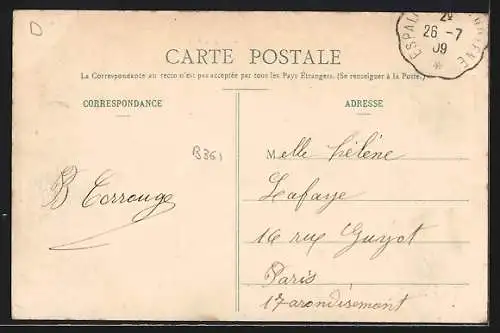 D
2º
26 -7
09
CARTE POSTALE
La Correspondance au recto n'est pas acceptée par tous les Pays Étrangers. (Se renseigner à la Poste)
CORRESPONDANCE
ADRESSE
B361
Melle hélène
Lafaye
16 rue Guyot
Paris
17 arondisement
B Corrouge